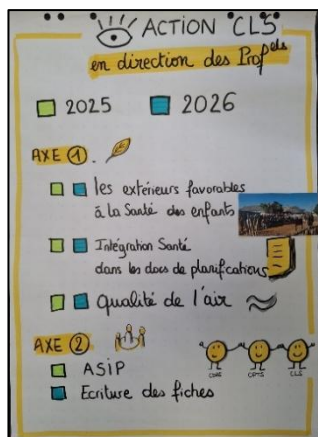 ACTION "CLS"
en direction des Profels
2025 2026
AXE 1.
les extérieurs favorables
à la Santé des enfants
Intégration Santé
dans les docs de planifications
qualité de l'air
AXE 2
ASiP
Ecriture des fiches
CLS